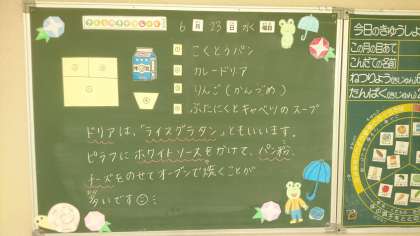 6月23日水曜日
① こくとうパン
② カレードリア
③ りんご(かんづめ)
④ ぶたにくとキャベツのスープ
ドリアは、「ライスグラタン」ともいいます。
ピラフにホワイトソースをかけて、パン粉、
チーズをのせてオーブンで焼くことが
多いです
今日のきゅうしょ
この月の目あて
こんだての名前
ねつりょう
たんぱく